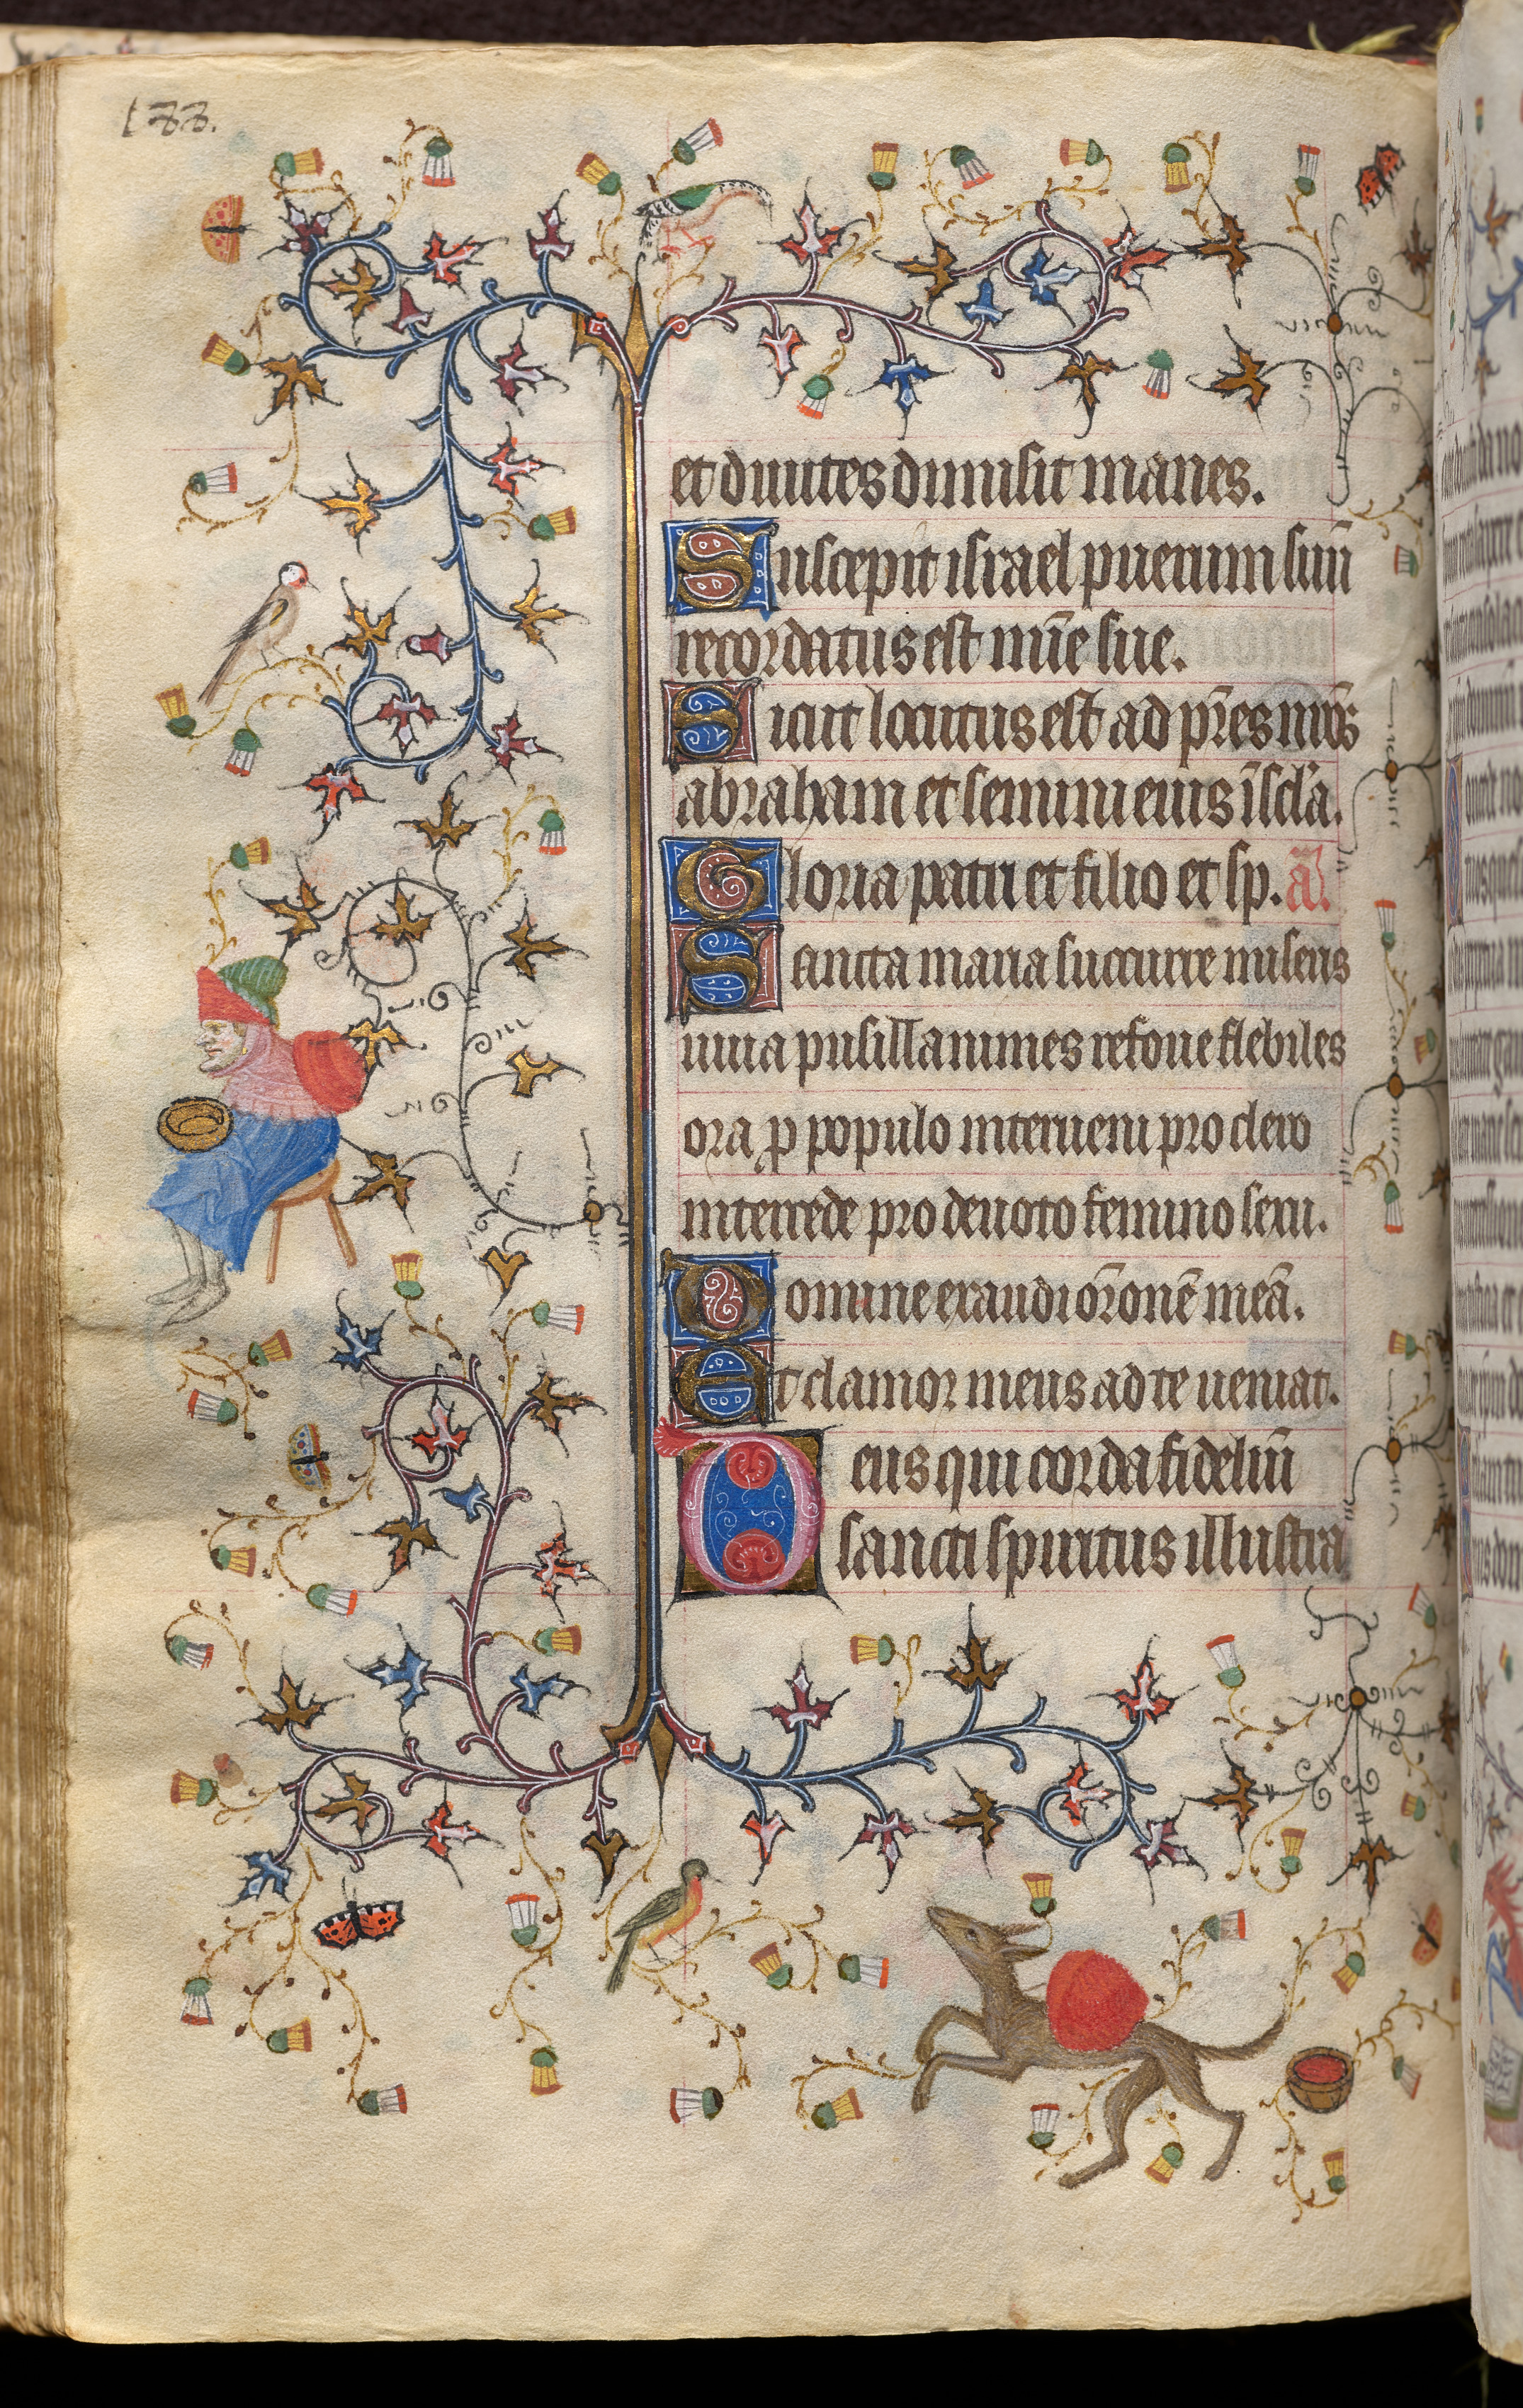 177.
et diuites dimisit inanes.
Suscepit israel puerum suū
recordatus est mīe sue.
Sicut locutus est ad p̄res nr̄os
abraham et semini eius ī scl̄a.
Gloria patri et filio et sp. añ.
Sancta maria succurre miseris
iuua pusillanimes refoue flebiles
ora ꝓ populo interueni pro clero
intercede pro deuoto femineo sexu.
Domine exaudi or̄onē meā.
Et clamor meus ad te ueniat.
Deus qui corda fideliū
sancti spiritus illustra